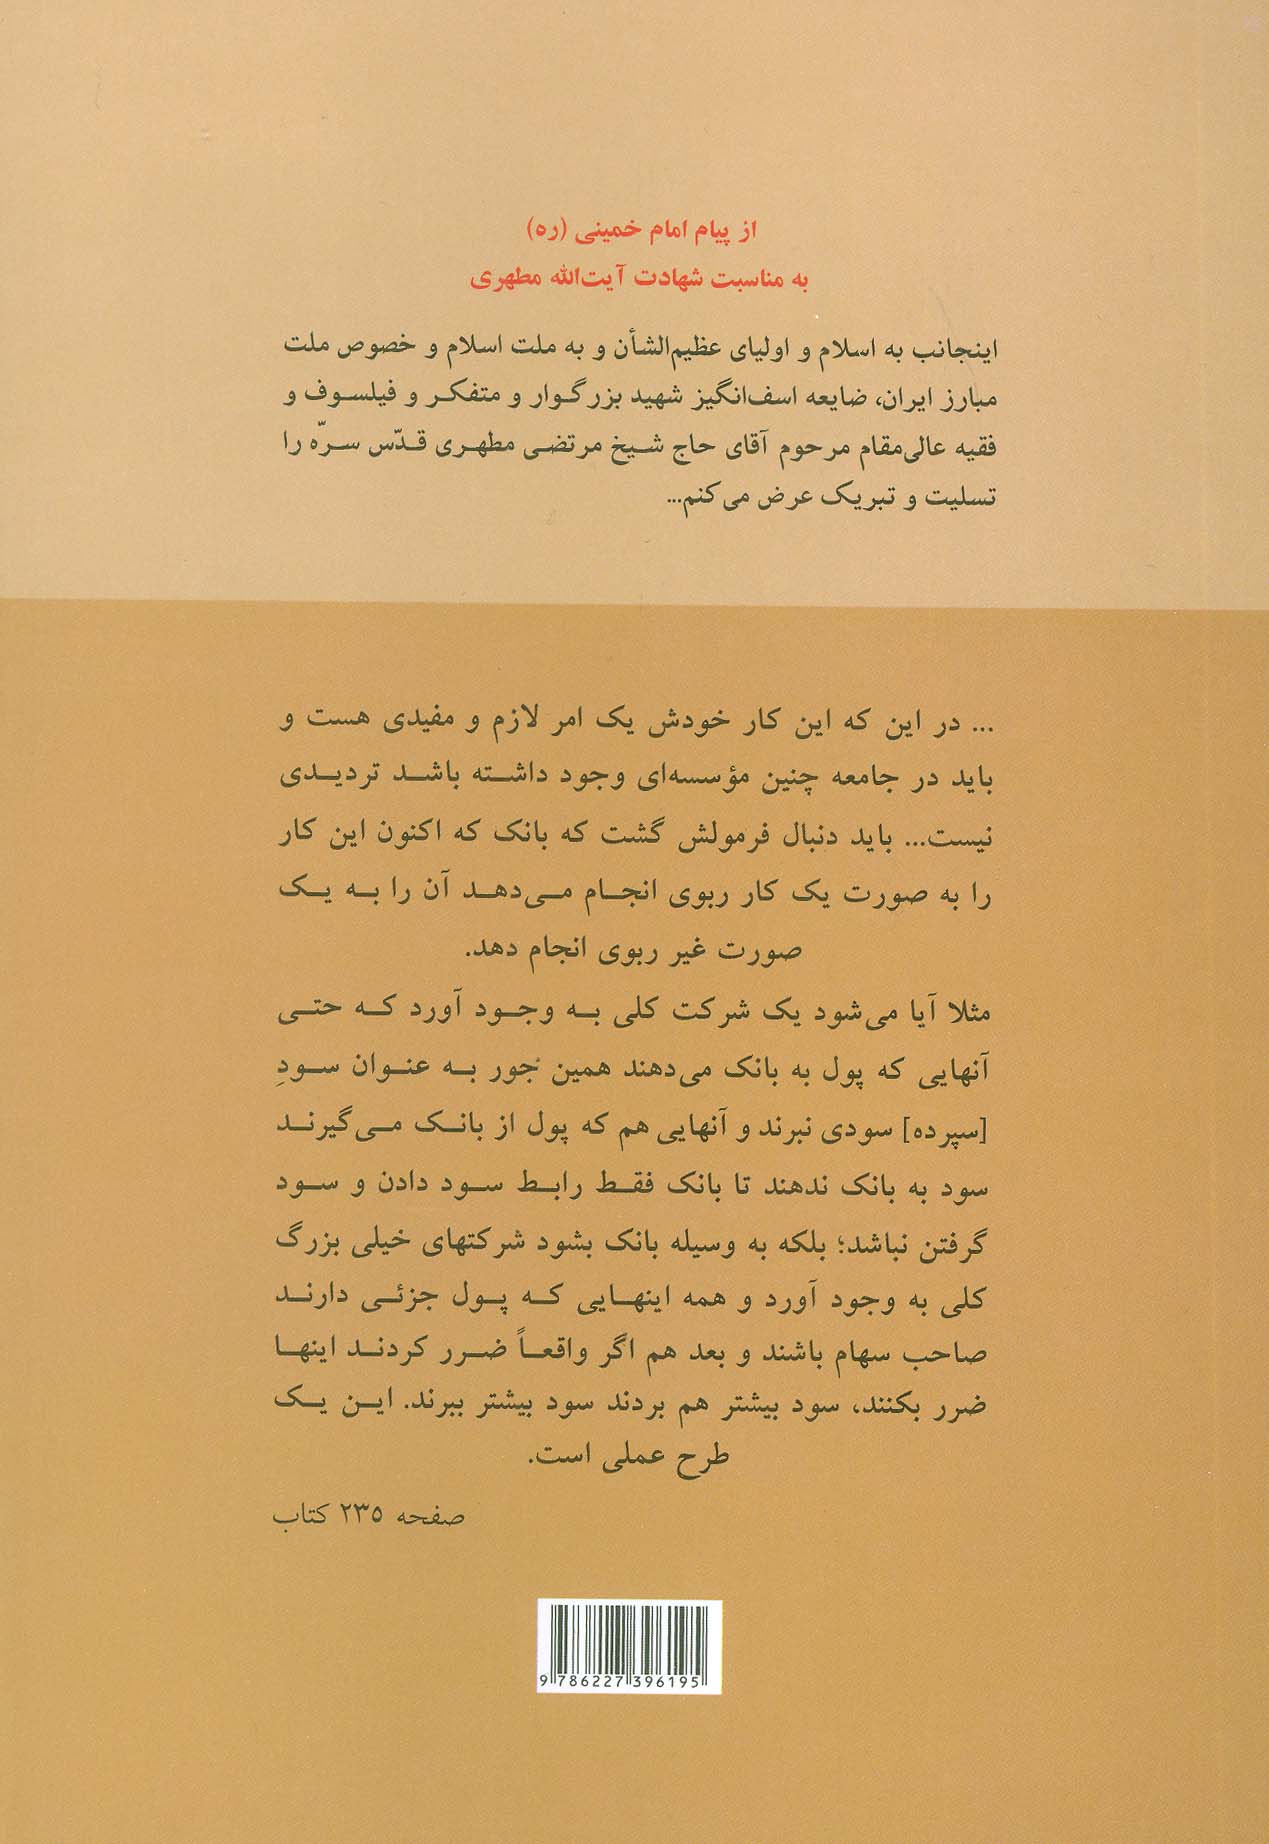 از پیام امام خمینی (ره)
به مناسبت شهادت آیت‌الله مطهری
اینجانب به اسلام و اولیای عظیم‌الشأن و به ملت اسلام و خصوص ملت
مبارز ایران، ضایعه اسف‌انگیز شهید بزرگوار و متفکر و فیلسوف و
فقیه عالی‌مقام مرحوم آقای حاج شیخ مرتضی مطهری قدّس سرّه را
تسلیت و تبریک عرض می‌کنم...
... در این که این کار خودش یک امر لازم و مفیدی هست و
باید در جامعه چنین مؤسسه‌ای وجود داشته باشد تردیدی
نیست... باید دنبال فرمولش گشت که بانک که اکنون این کار
را به صورت یک کار ربوی انجام می‌دهد آن را به یک
صورت غیر ربوی انجام دهد.
مثلا آیا می‌شود یک شرکت کلی به وجود آورد که حتی
آنهایی که پول به بانک می‌دهند همین جور به عنوان سودِ
[سپرده] سودی نبرند و آنهایی هم که پول از بانک می‌گیرند
سود به بانک ندهند تا بانک فقط رابط سود دادن و سود
گرفتن نباشد؛ بلکه به وسیله بانک بشود شرکتهای خیلی بزرگ
کلی به وجود آورد و همه اینهایی که پول جزئی دارند
صاحب سهام باشند و بعد هم اگر واقعاً ضرر کردند اینها
ضرر بکنند، سود بیشتر هم بردند سود بیشتر ببرند. این یک
طرح عملی است.
صفحه ۲۳۵ کتاب
9 786227 396195